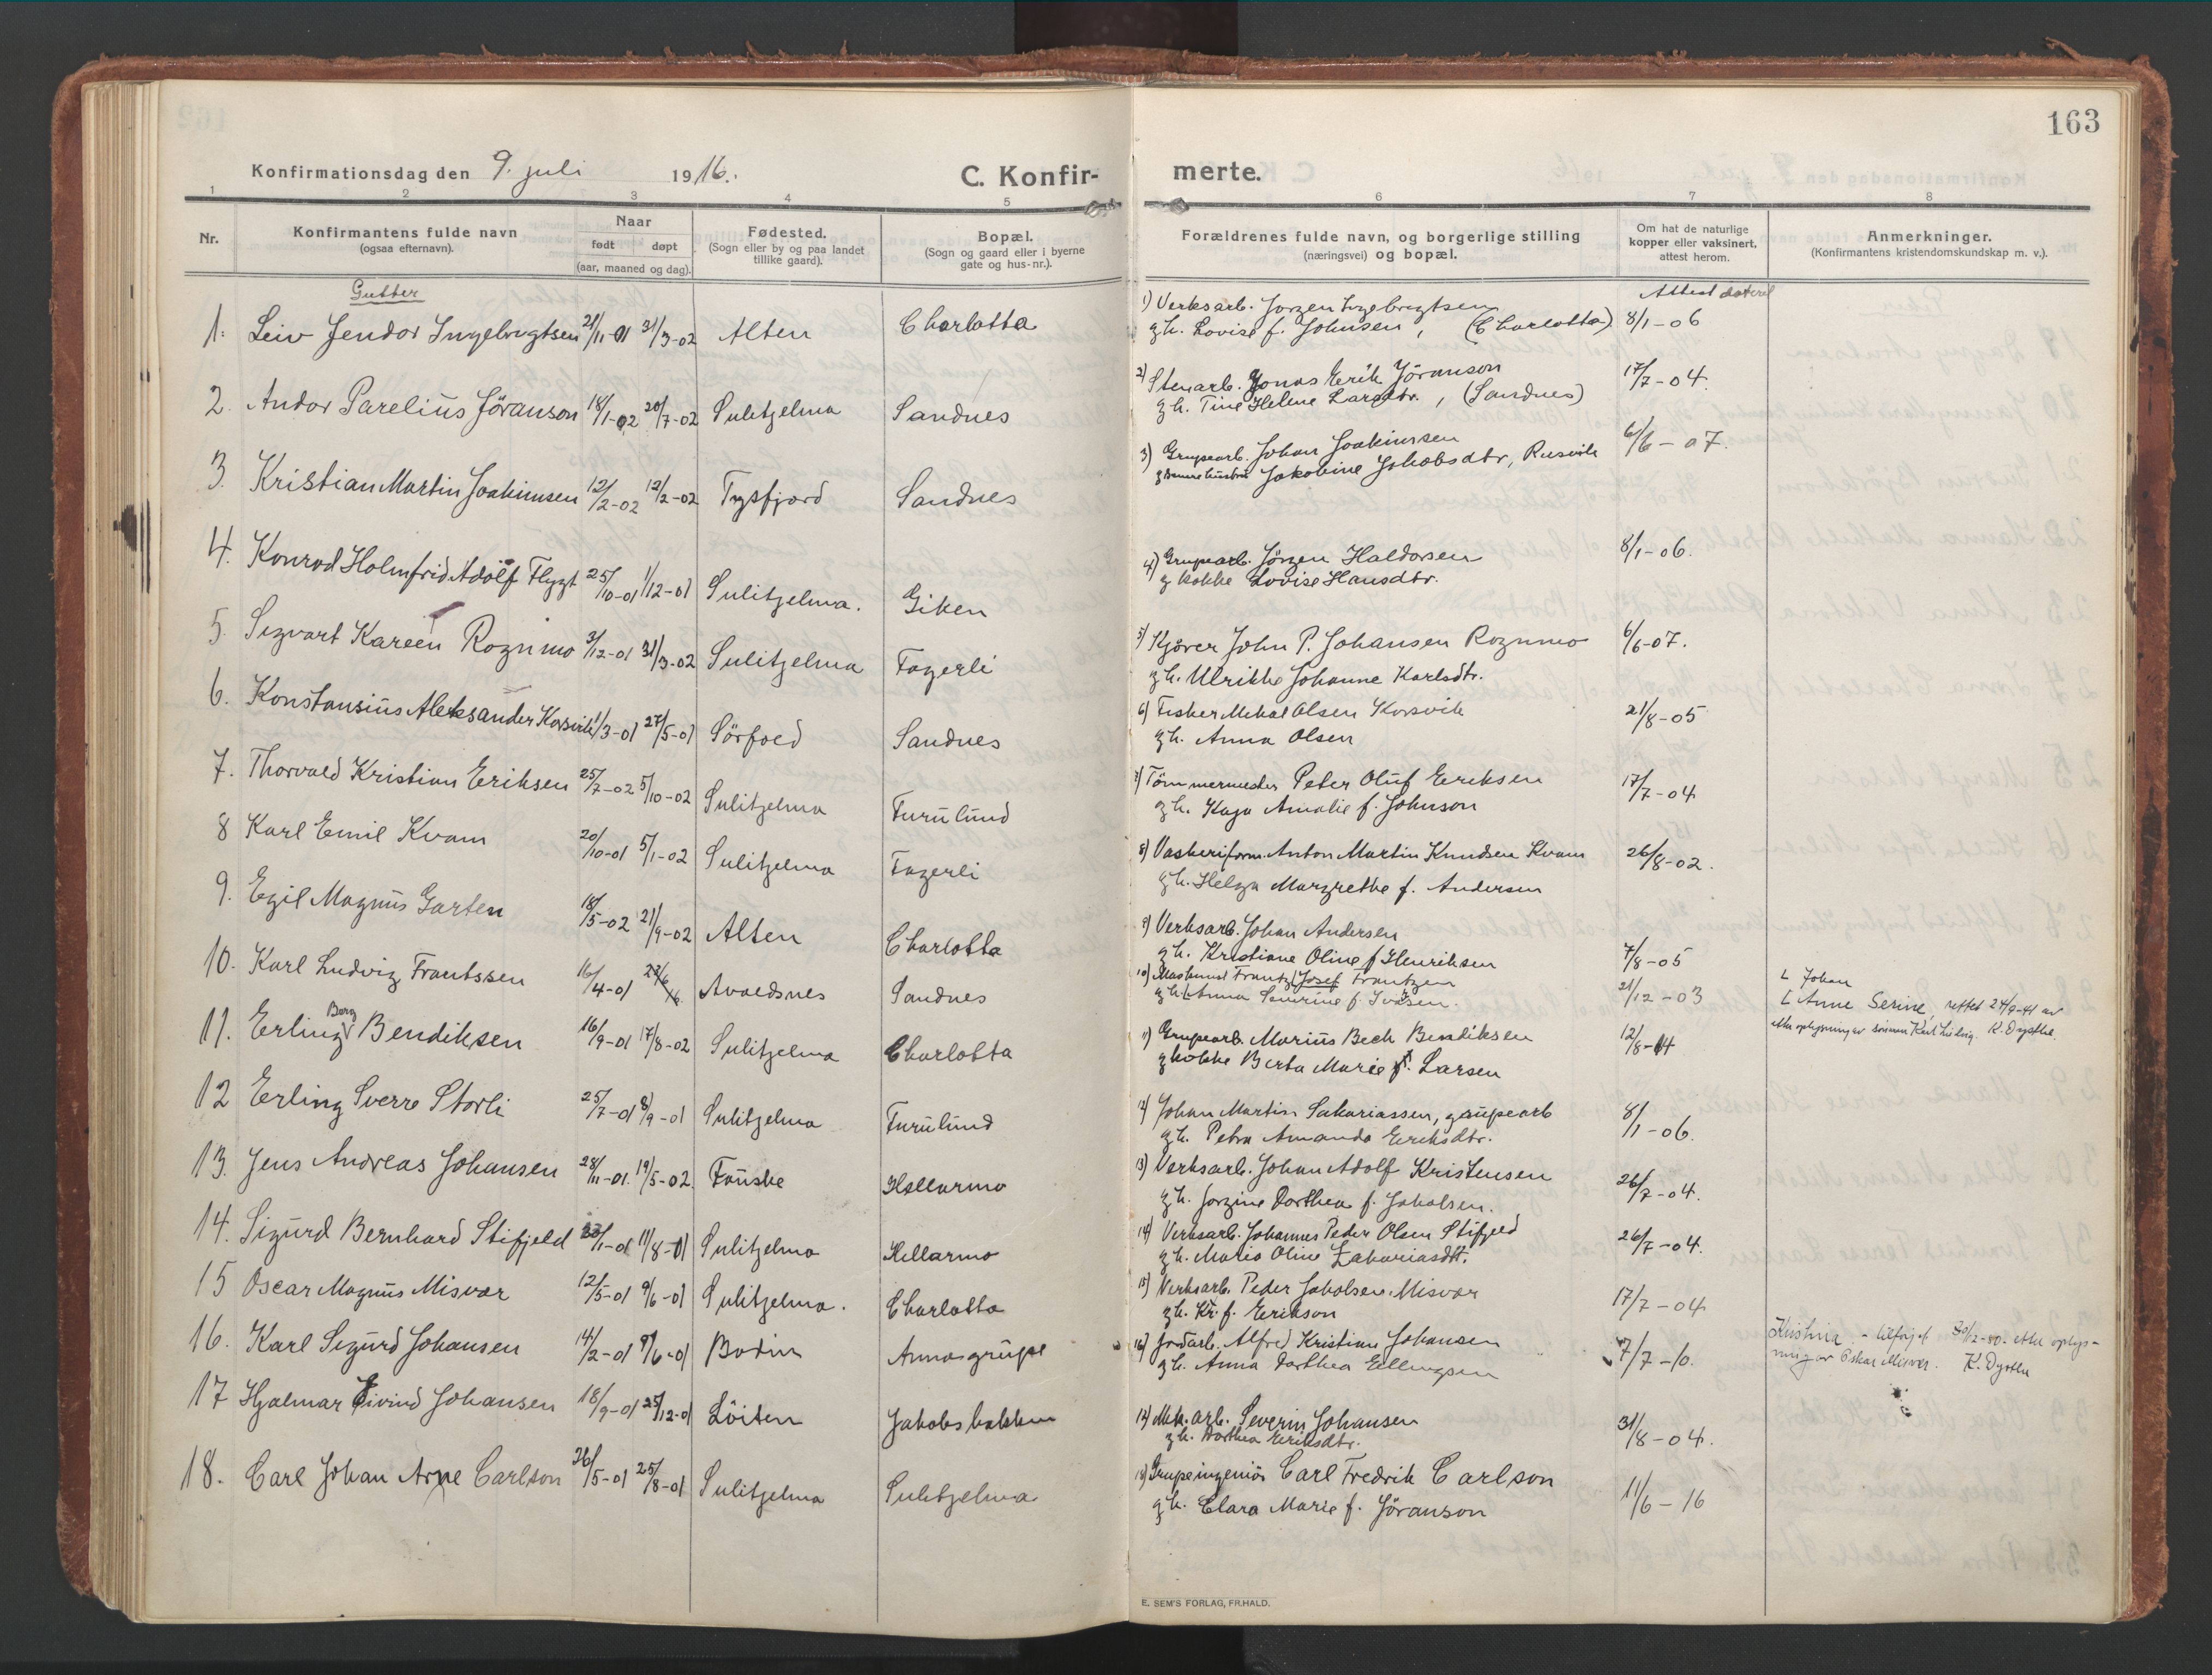 163
Konfirmationsdag den 9. juli 1916.
C. Konfirmerte.
1 2 3 4 5 6 7 8
Nr.
Konfirmantens fulde navn
(ogsaa efternavn).
Naar
født døpt
(aar, maaned og dag).
Fødested.
(Sogn eller by og paa landet
tillike gaard).
Bopæl.
(Sogn og gaard eller i byerne
gate og hus-nr.).
Forældrenes fulde navn, og borgerlige stilling
(næringsvei) og bopæl.
Om hat de naturlige
kopper eller vaksinert,
attest herom.
Anmerkninger.
(Konfirmantens kristendomskundskap m. v.).
Gutter
Attest datert
1. Leiv Jendor Ingebrigtsen 21/11-01 31/3-02 Alten Charlotta
1) Verksarb. Jørgen Ingebrigtsen
g h. Lovise f. Johnsen, (Charlotta) 8/1-06
2. Andor Parelius Jöranson 18/1-02 20/7-02 Sulitjelma Sandnes
2) Stenarb. Jonas Erik Jöranson 17/7-04.
g h. Tine Helene Larsdtr., (Sandnes)
3. Kristian Martin Joakimsen 12/2-02 12/2-02 Tysfjord Sandnes
3) Grupearb. Johan Joakimsen 6/6-07.
Jakobine Jakobsdtr, Rusvik
4. Konrad Holmfrid Adolf Flygt 25/10-01 1/12-01 Sulitjelma. Giken
4) Grupearb. Jörgen Haldorsen 8/1-06.
g kokke Lovise Hansdtr.
5. Sigvart Kareen Rognmo 3/12-01 31/3-02 Sulitjelma Fagerli
5) Kjører John P. Johansen Rognmo 6/6-07.
g h. Ulrikke Johanne Karlsdtr.
6. Konstansius Aleksander Korsvik 1/3-01 27/5-01 Sörfold Sandnes
6) Fisker Mikal Olsen Korsvik 21/8-05
g h. Anna Olsen
7. Thorvald Kristian Eriksen 25/7-02 5/10-02 Sulitjelma Furulund
7) Tömmermester Peter Oluf Eriksen 17/7-04
g h. Kaja Amalie f. Johnson
8 Karl Emil Kvam 20/10-01 5/1-02 Sulitjelma Fagerli
8) Vaskeriform. Anton Martin Knudsen Kvam 26/8-02.
g h. Helga Margrethe f. Andersen
9. Egil Magnus Garten 18/5-02 21/9-02 Alten Charlotta
9) Verksarb. Johan Andersen
g h. Kristiane Oline f Henriksen 7/8-05
10. Karl Ludvig Frantssen 16/4-01 Avaldsnes Sandnes
10) Maskinist Frantz Josef Frantzen 21/12-03 L Johan
g h. L Anna Severine f. Ivarsen. L Anne Serine, rettet 24/9-41 av
K. Dysthe.
11. Erling Berg Bendiksen 16/9-01 17/8-02 Sulitjelma Charlotta
11) Grupearb. Marius Bech Bendiksen 12/8-14
g kokke Berta Marie f. Larsen
12 Erling Sverre Storli 25/7-01 8/9-01 Sulitjelma Furulund
12) Johan Martin Sakariassen, grupearb 8/1-06.
g h. Petra Amanda Eriksdtr.
13. Jens Andreas Johansen 28/11-01. 19/5-02. Fauske Hellarmo
13) Verksarb. Johan Adolf Kristensen 26/7-04.
g h. Jorgine Dorthea f. Jakobsen.
14. Sigurd Bernhard Stifjeld 23/1-01 11/8-01 Sulitjelma Hellarmo
14) Verksarb. Johannes Peder Olsen Stifjeld 26/7-04.
g h. Maria Oline Zakariasdtr.
15 Oscar Magnus Misvær 12/5-01 9/6-01 Sulitjelma. Charlotta
15) Verksarb. Peder Jakobsen Misvær 17/7-04
g h. Kr. f. Erikson
Kristina - tilføjet 30/12-80. etter oplys-
ning av Oskar Misvær. K. Dysthe
16. Karl Sigurd Johansen 14/2-01 9/6-01 Bodin Annasgrupe
16) Jordarb. Alfred Kristian Johansen 7/7-10.
g h. Anna Dorthea Ellingsen
17 Hjalmar Eivind Johansen 18/9-01 25/12-01 Löiten Jakobsbakken
17) Mek. arb. Severin Johansen 31/8-04.
g h. Dorthea Eriksdtr.
18. Carl Johan Arne Carlson 26/5-01 25/8-01 Sulitjelma Sulitjelma
18) Grupeingeniör Carl Fredrik Carlson 11/6-16
g h. Clara Marie f. Jöranson
E. SEM'S FORLAG, FR.HALD.